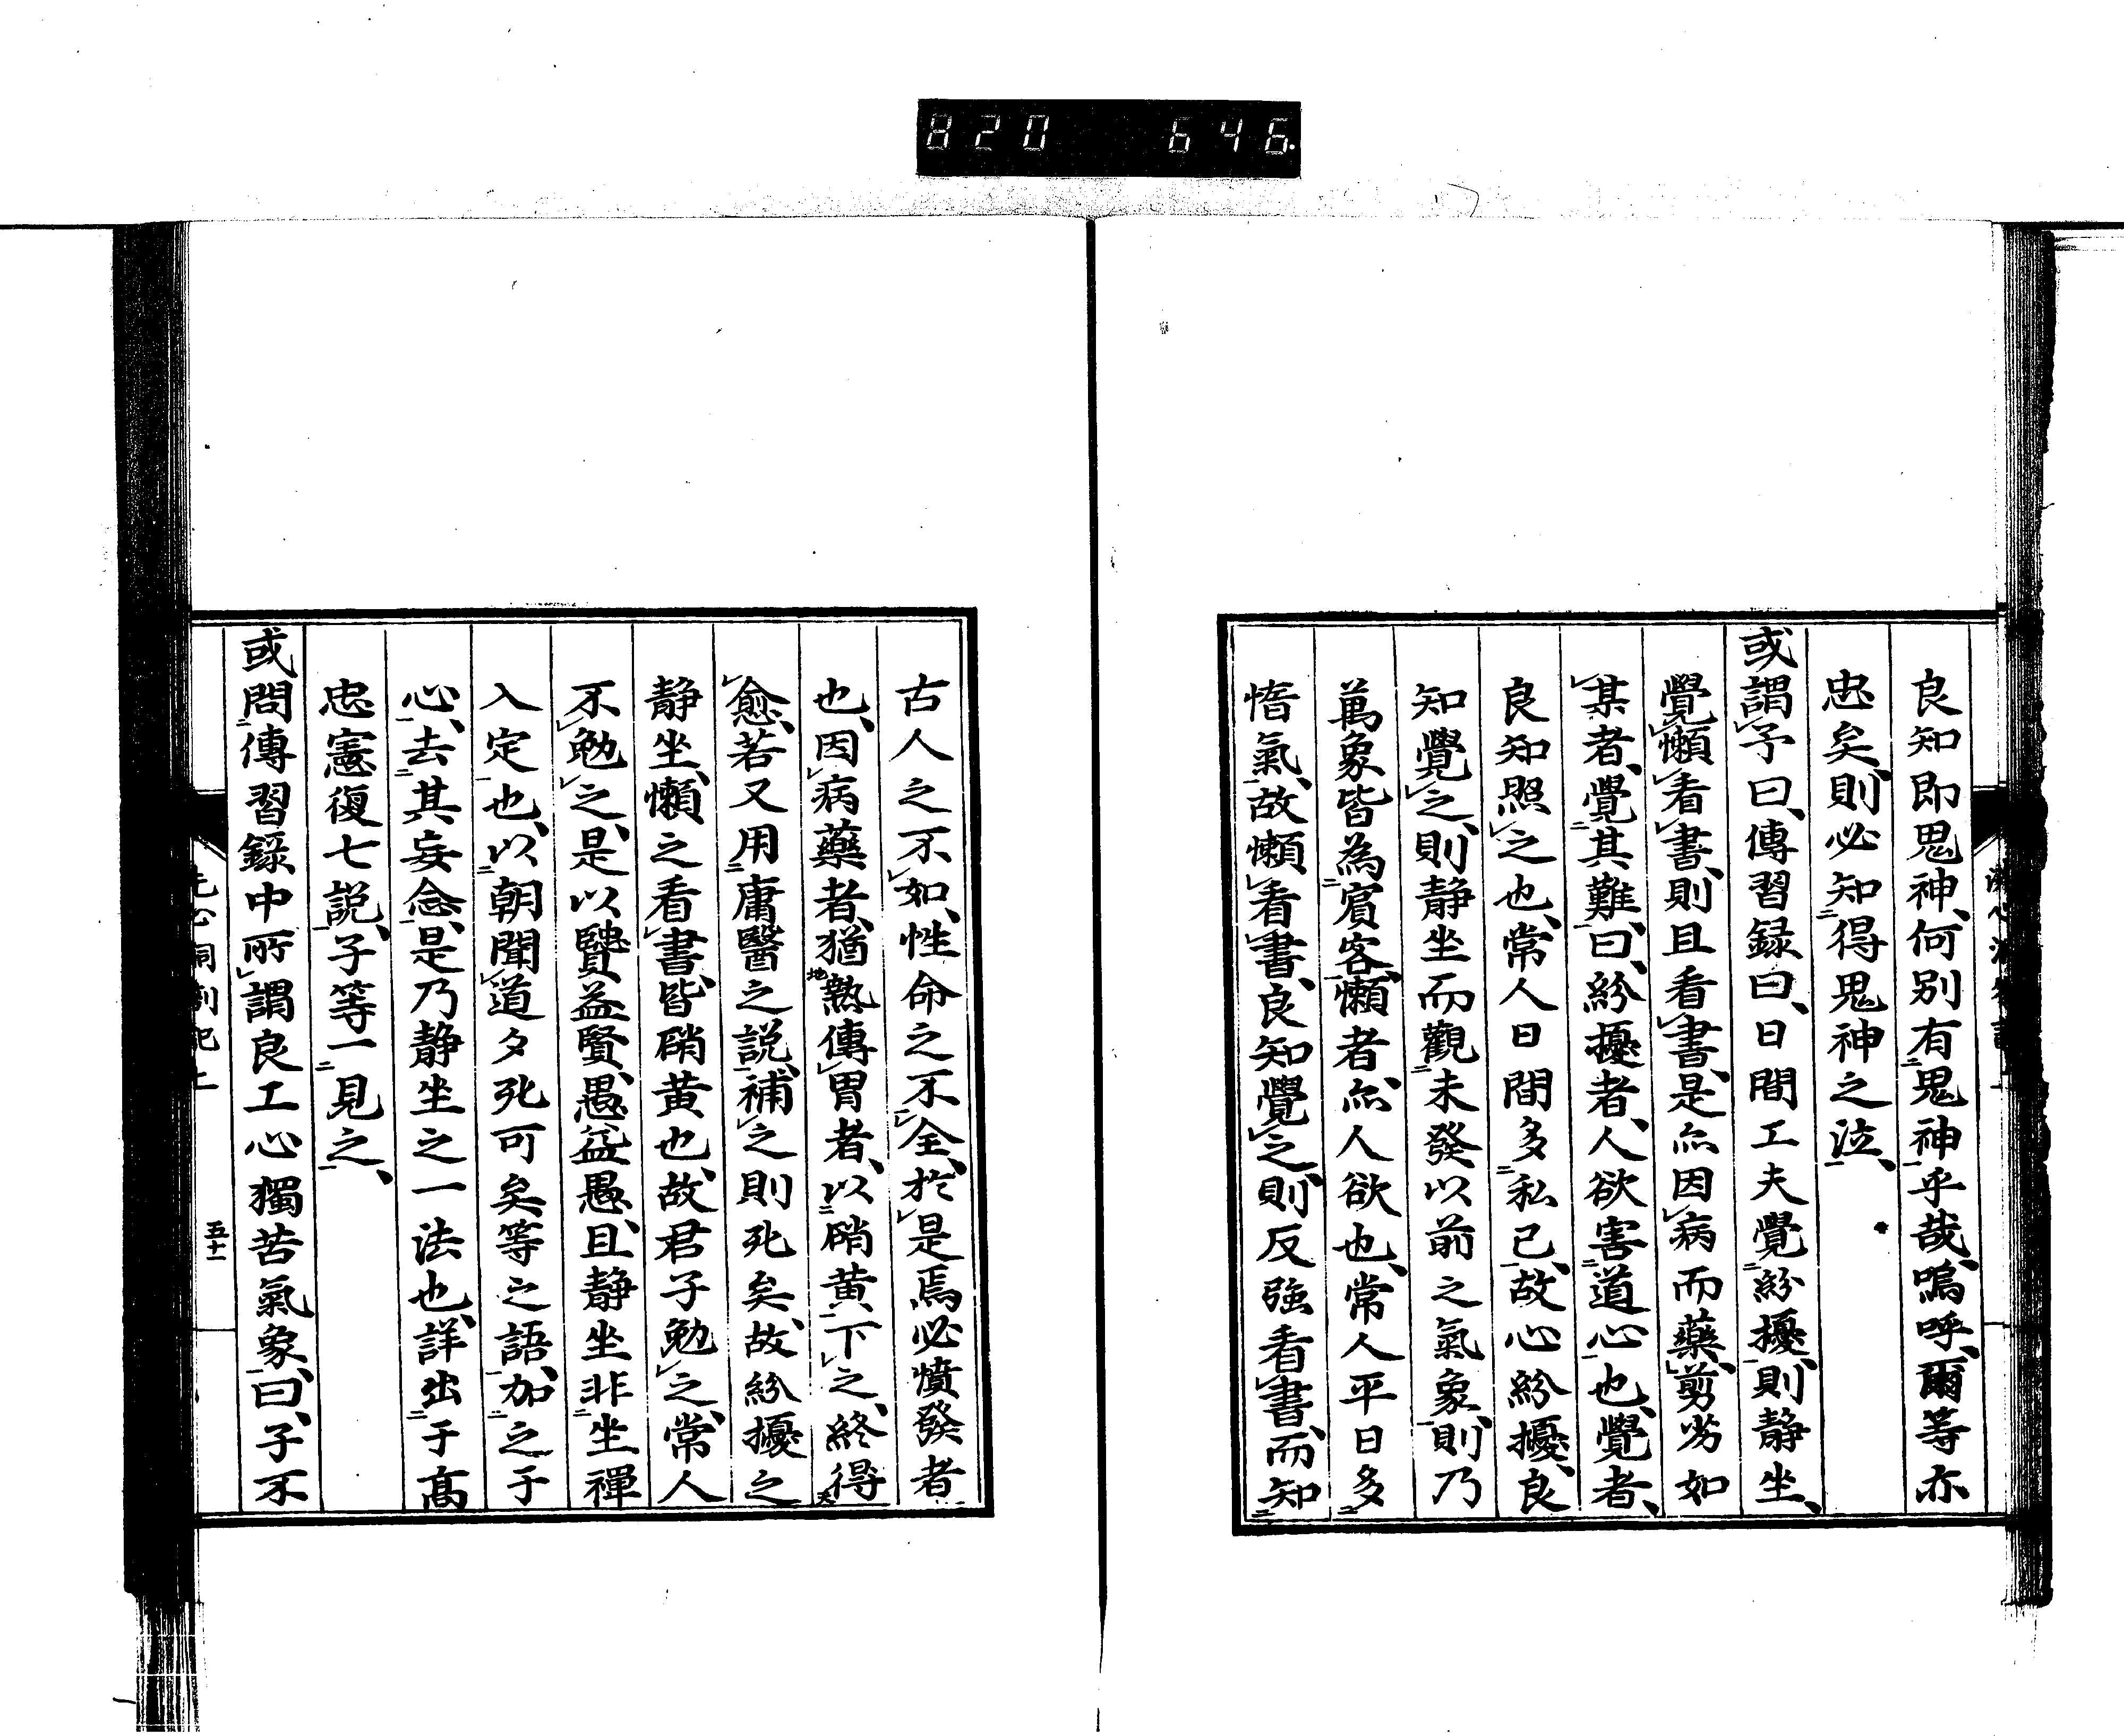 820 646
良知即鬼神、何別有鬼神乎哉、嗚呼、爾等亦
忠矣、則必知得鬼神之泣、
或謂予曰、傳習録曰、日間工夫覺紛擾、則静坐、
覺懶看書、則且看書、是亦因病而藥、剪劣如
某者、覺其難、曰、紛擾者、人欲害道心也、覺者、
良知照之也、常人日間多私己、故心紛擾、良
知覺之、則静坐而觀未發以前之氣象、則乃
萬象皆為賓客、懶者、亦人欲也、常人平日多
惰氣、故懶看書、良知覺之、則反強看書、而知
古人之不如、性命之不全、於是焉必憤發者
也、因病藥者、猶熱傳胃者、以硝黄下之、終得
愈、若又用庸醫之説、補之則死矣、故紛擾之
静坐、懶之看書、皆硝黄也、故君子勉之、常人
不勉之、是以賢益賢、愚益愚、且静坐非坐禪
入定也、以朝聞道夕死可矣等之語、加之于
心、去其妄念、是乃静坐之一法也、詳出于高
忠憲復七説、子等一見之、
或問傳習録中所謂良工心獨苦氣象、曰、子不
五十一